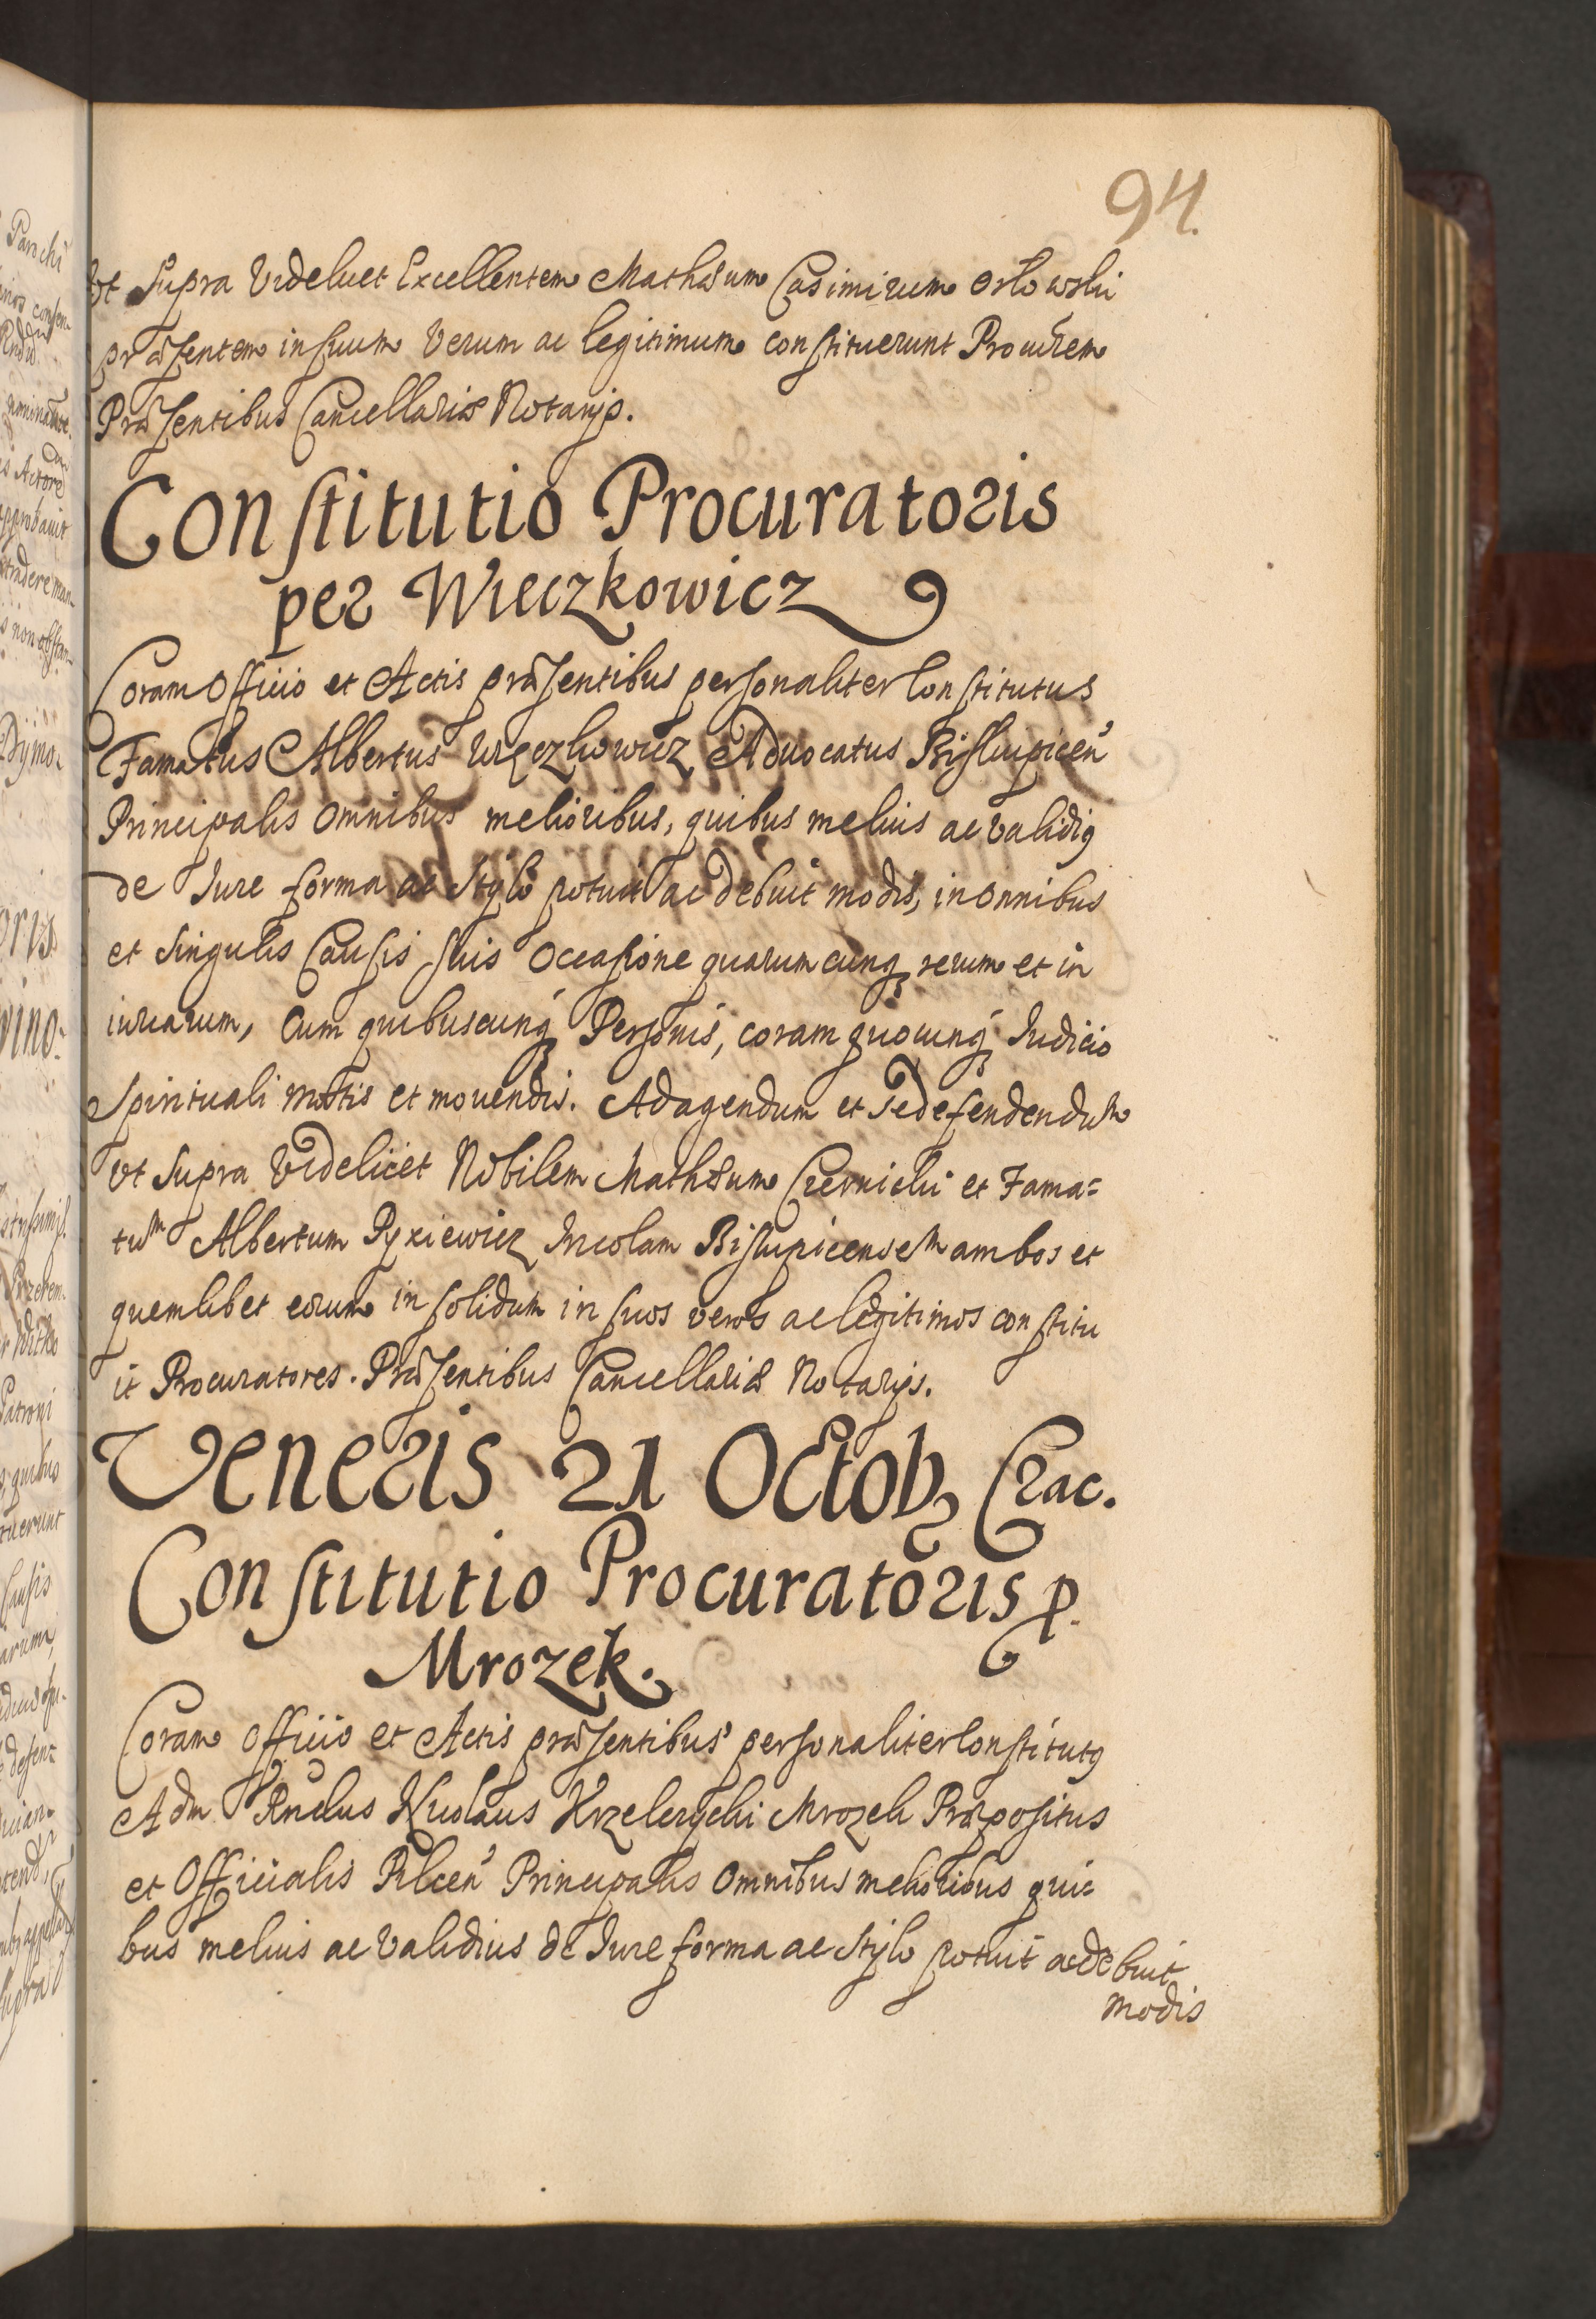 94.
Vt Supra Videlicet Excellentem Mathæum Casimirum Orłowski
præsentem in suum verum ac legitimum constituerunt Procũrem
Præsentibus Cancellariæ Notarijs.
Constitutio Procuratoris
per Wieczkowicz
Coram Officio et Actis præsentibus personaliter Constitutus
Famatus Albertus Więczkowicz Aduocatus Biskupicen̄
Principalis omnibus melioribus, quibus melius ac validig
de Jure forma ac stylo potuit ac debuit modis, in omnibus
et singulis Causis suis Occasione quarumcunq rerum et in
iuriarum, Cum quibuscunq Personis, coram quocunq Judicio
Spirituali motis et mouendis. Ad agendum et se defendendum
vt Supra Videlicet Nobilem Mathæum Czernicki et Fama=
tum Albertum Pyxiewicz Incolam Biskupicensem ambos et
quemlibet eorum in solidum in suos veros ac legitimos constitu
it Procuratores. Præsentibus Cancellariæ Notarijs.
Veneris 21 Octobz Crac.
Constitutio Procuratoris p.
Mrozek.
Coram Officio et Actis præsentibus personaliter Constitutg
Adm Rndus Nicolaus Krzelczycki Mrozek Præpositus
et Officialis Pilcen̄ Principalis omnibus melioribus qui=
bus melius ac validius de Jure forma ac stylo potuit ac debuit
modis